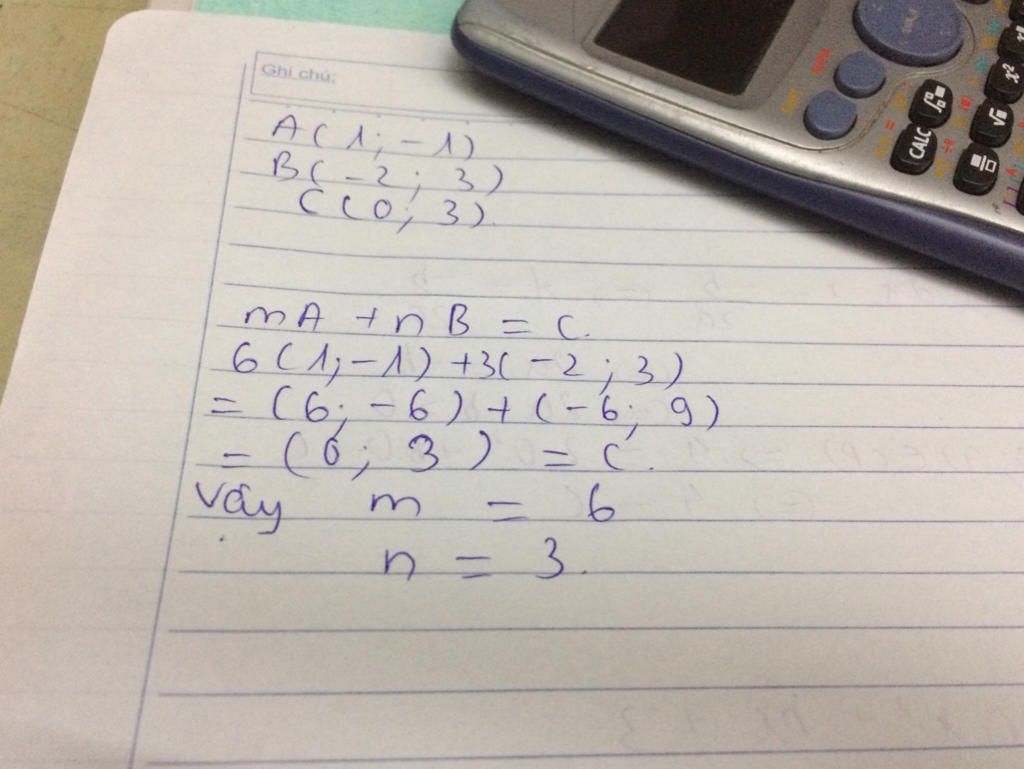 Ghi chú:
A(1; -1)
B(-2; 3)
C(0; 3).
mA + nB = C.
6(1; -1) + 3(-2; 3)
= (6; -6) + (-6; 9)
= (0; 3) = C.
Vậy m = 6
n = 3.
CALC
x²
√